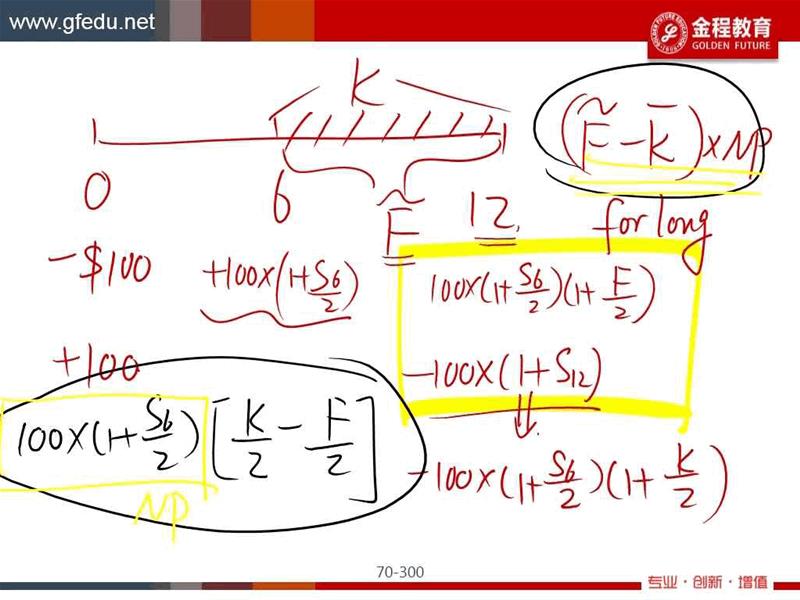 www.gfedu.net
金程教育
GOLDEN FUTURE
K
0
6
12
F̃
(F̃-K̄)×NP
for long
-$100
+100×(1+S₆/2)
100×(1+S₆/2)(1+F/2)
+100
-100×(1+S₁₂)
⇓
100×(1+S₆/2)[K/2-F/2]
NP
-100×(1+S₆/2)(1+K/2)
70-300
专业·创新·增值